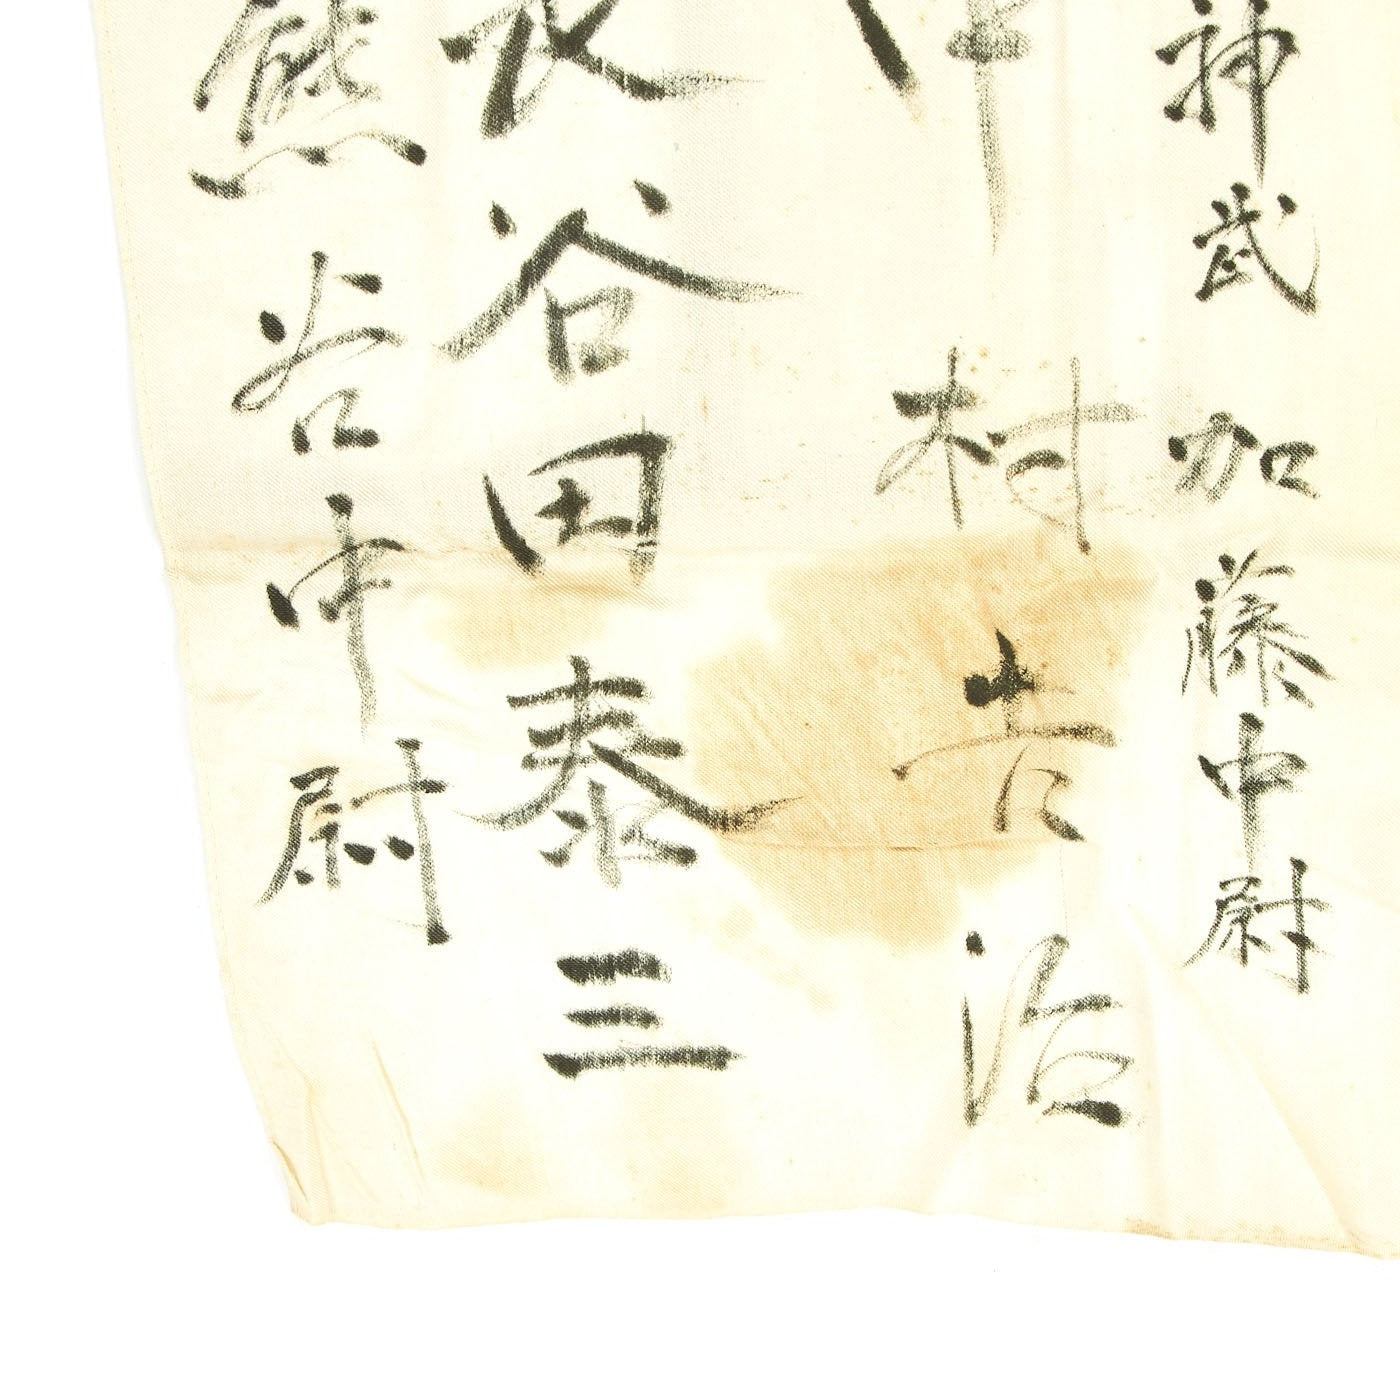 神武 加藤中尉
村吉治
谷田泰三
熊谷中尉